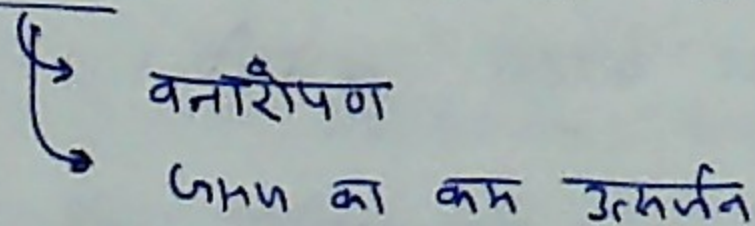 वनारोपण
का कम उत्सर्जन